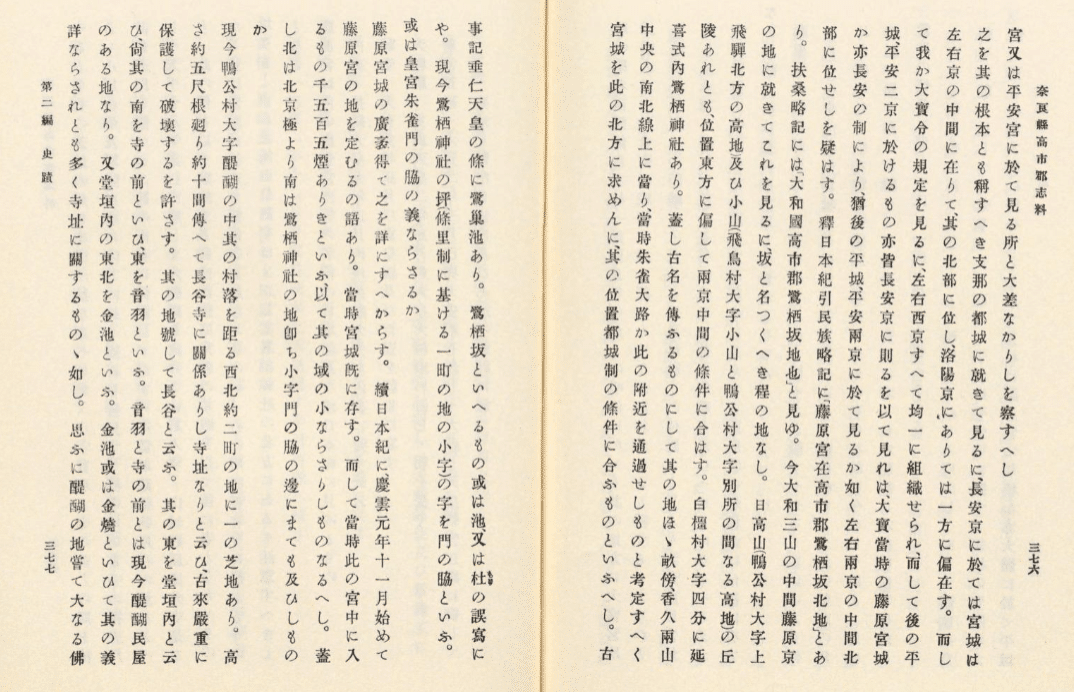 奈良縣高市郡志料
三七六
宮又は平安宮に於て見る所と大差なかりしを察すへし
之を其の根本とも稱すへき支那の都城に就きて見るに、長安京に於ては宮城は
左右京の中間に在りて、其の北部に位し、洛陽京にありては一方に偏在す。而し
て我か大寶令の規定を見るに、左右兩京すへて均一に組織せられ、而して後の平
城、平安二京に於けるもの亦皆長安京に則るを以て見れは、大寶當時の藤原宮城
か亦長安の制により、猶後の平城、平安兩京に於て見るか如く左右兩京の中間北
部に位せしを疑はす。釋日本紀引民族略記に「藤原宮在高市郡鷺栖坂北地」とあ
り。扶桑略記には、「大和國高市郡鷺栖坂地也」と見ゆ。今大和三山の中間藤原京
の地に就きてこれを見るに、坂と名つくへき程の地なし。日高山(鴨公村大字上
飛驒北方の高地)及ひ小山(飛鳥村大字小山と鴨公村大字別所の間なる高地)の丘
陵あれとも、位置東方に偏して兩京中間の條件に合はす。白橿村大字四分に延
喜式內鷺栖神社あり。蓋し古名を傳ふるものにして其の地ほゝ畝傍、香久兩山
中央の南北線上に當り、當時朱雀大路か此の附近を通過せしものと考定すへく
宮城を此の北方に求めんに、其の位置都城制の條件に合ふものといふへし。古
事記垂仁天皇の條に鷺巢池あり。鷺栖坂といへるもの或は池、又は杜の誤寫に
や。現今鷺栖神社の坪(條里制に基ける一町の地の小字)の字を門の脇といふ。
或は皇宮朱雀門の脇の義ならさるか
藤原宮城の廣袤得て之を詳にすへからす。續日本紀に慶雲元年十一月始めて
藤原宮の地を定むるの語あり。當時宮城旣に存す。而して當時此の宮中に入
るもの千五百五煙ありきといふ、以て其の域の小ならさりしものなるへし。蓋
し北は北京極より南は鷺栖神社の地卽ち小字門の脇の邊にまても及ひしもの
か
現今鴨公村大字醍醐の中其の村落を距る西北約二町の地に一の芝地あり。高
さ約五尺根廻り約十間傳へて長谷寺に關係ありし寺址なりと云ひ、古來嚴重に
保護して破壞するを許さす。其の地號して長谷と云ふ。其の東を堂垣內と云
ひ、尙其の南を寺の前といひ、東を音羽といふ。音羽と寺の前とは現今醍醐民屋
のある地なり。又堂垣內の東北を金池といふ。金池或は金燒といひて其の義
詳ならされとも多く寺址に關するものゝ如し。思ふに醍醐の地嘗て大なる佛
第二編 史蹟
三七七